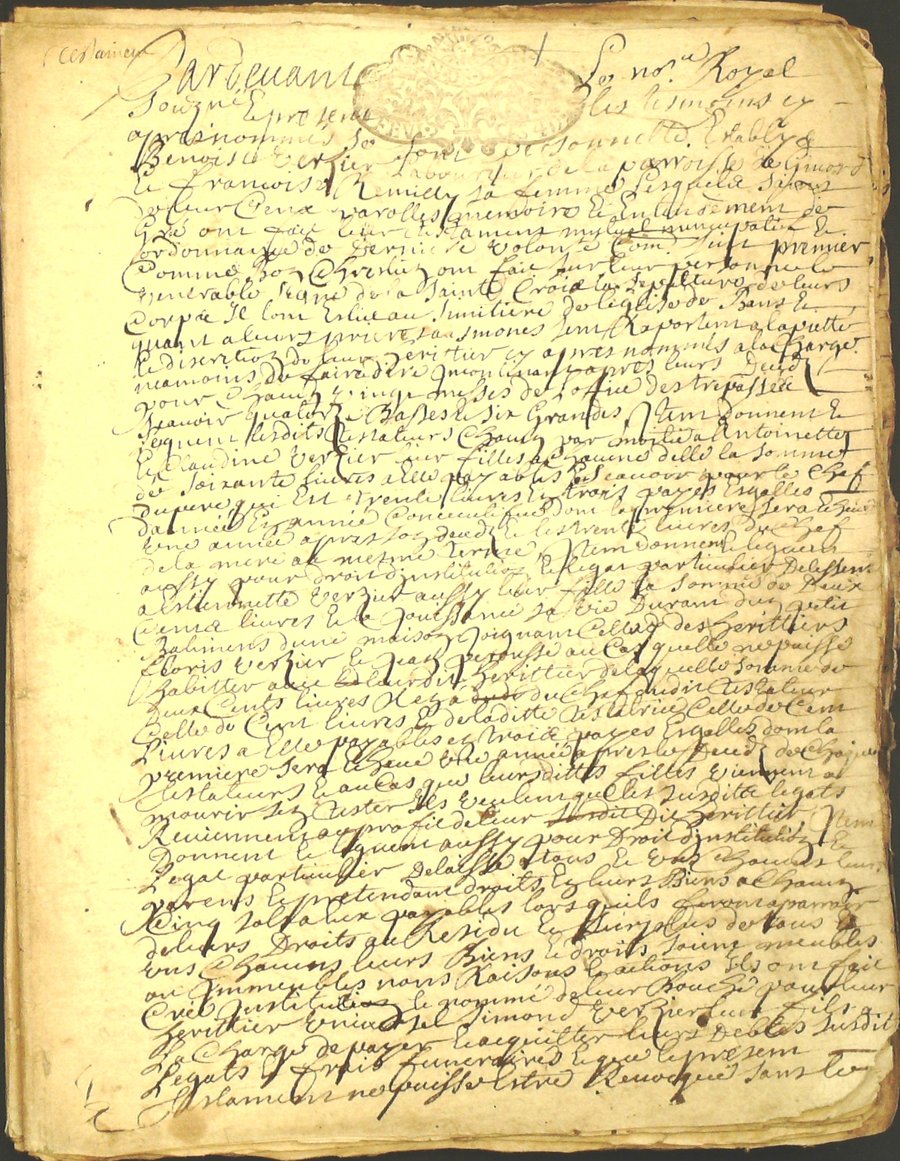 testament
Pardevant Le nore Royal
Souzné Et present les tesmoins cy
apres nommés se sont personnellemt Establis
Benoist Verzier Laboureur de la parroisse de
Et Francoise Remilly sa femme Lesquels
de leur Ceux parolles memoire Et Entendement de
Gré ont fait leur testament mutuel nuncupatif Et
ordonnance de derniere volonté Com suit premier
Comme bon Chretien ont fait sur leur personne le
venerable signe de la Sainte Croix la sepulture de leurs
Corps Il lont Eslieu au Simitiere de leglise de Bans Et
quant a leurs prieres aumones sen Raportent a la pietté
Et discretion de leur heritier cy apres nommés a la Charge
neamoins de faire dire Incontinant apres leurs deced
pour Chacun vingt messes de loffice des trepassés
scavoir quatorze Basses Et six Grandes Item donnent Et
leguent lesdits testateurs Chacun par moitié a Antoinette
Et Claudine Verzier leur filles a chacune delle la somme
de soixante livres a Elle payables scavoir pour le Chef
du pere qui Est trente livres En trois payes Esgalles
dannée En année Consecutifves dont la premiere sera
une année apres son deced Et les trente livres du Chef
de la mere au mesme terme, Item donnent Et leguent
aussy pour droit dinstitution Et legat particulier Delaissent
a Estiennette Verzier aussy leur fille la somme de Deux
Cents livres Et la Jouissance sa vie Durant dun petit
Batiment dune maison Joignant Celle des heritiers
Floris Verzier Et Jean perousse au Cas quelle ne puisse
habitter avec leurdit heritier de laquelle somme de
deux Cents livres du Chef dudit testateur
Celle de Cent livres Et de laditte testatrice Celle de Cent
Livres a Elle payables et trois payes Esgalles dont la
premiere sera Echeue une année apres le Deced de Chaque
testateurs Et au Cas que leursdittes filles viennent a
mourir sans tester Ils veulent que les susditte legats
Reviennent au profit de leur Dit heritier, Item
Donnent Et leguent aussy pour Droit dinstitution Et
Legat particulier Delaissé a tous Et uns Chacuns leurs
parens Et pretendant droits En leurs Biens a Chacun
Cinq sols a Eux payables lors quils feront aparroir
de leurs Droits au Residu Et Surplus de tous Et
uns Chacuns leurs Biens Et droits soient meubles
ou Immeubles noms Raisons Et actions Ils ont fait
Creé Institué Et nommé de leur Bouche pour leur
heritier Universel Simond Verzier leur fils a
La Charge de payer Et acquitter leurs Debtes susdit
Legats Et frais funeraires Et que le present
testament ne puisse Estre Revocqué sans le